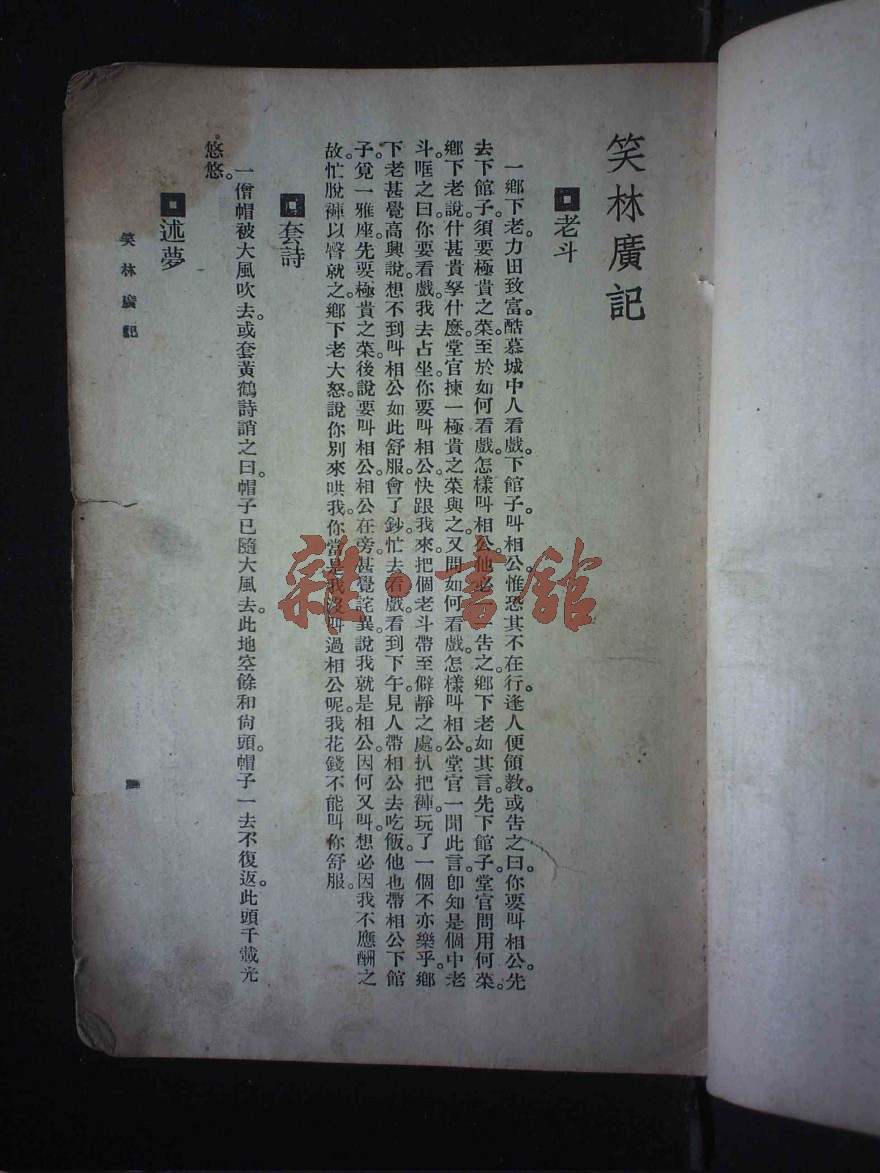 笑林廣記
老斗
一鄉下老。力田致富。酷慕城中人看戲。下館子。叫相公。惟恐其不在行。逢人便領教。或告之曰。你要叫相公。先
去下館子。須要極貴之菜。至於如何看戲。怎樣叫相公。他必一一告之。鄉下老如其言。先下館子。堂官問用何菜。
鄉下老說。什甚貴拏什麼。堂官揀一極貴之菜與之。又問如何看戲。怎樣叫相公。堂官一聞此言。卽知是個中老
斗。哐之曰。你要看戲。我去占坐。你要叫相公。快跟我來。把個老斗帶至僻靜之處。扒把褲。玩了一個不亦樂乎。鄉
下老甚覺高興。說。想不到叫相公如此舒服。會了鈔。忙去看戲。看到下午。見人帶相公去吃飯。他也帶相公下館
子。覓一雅座。先要極貴之菜。後說要叫相公。相公在旁。甚覺詫異。說我就是相公。因何又叫。想必因我不應酬之
故。忙脫褲以臀就之。鄉下老大怒說。你別來哄我。你當是我沒叫過相公呢。我花錢不能叫你舒服。
套詩
一僧帽被大風吹去。或套黃鶴詩誚之曰。帽子已隨大風去。此地空餘和尙頭。帽子一去不復返。此頭千載光
悠悠。
述夢
笑林廣記
雜·書館